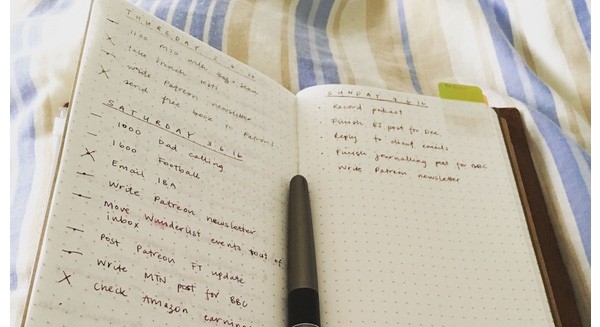 THURSDAY 2.6.16
1100 MTG with
Write Patreon newsletter
Send free book to
SATURDAY 3.6.16
1000 Dad calling
1600 Football
Email IBA
Write Patreon newsletter
Move Wunderlist events out of
inbox
Post Patreon FT update
Write MTN post for BBC
Check Amazon earnings
SUNDAY
Record podcast
Finish BJ post for Dee
Reply to emails
Finish journalling post for BBC
Write Patreon newsletter